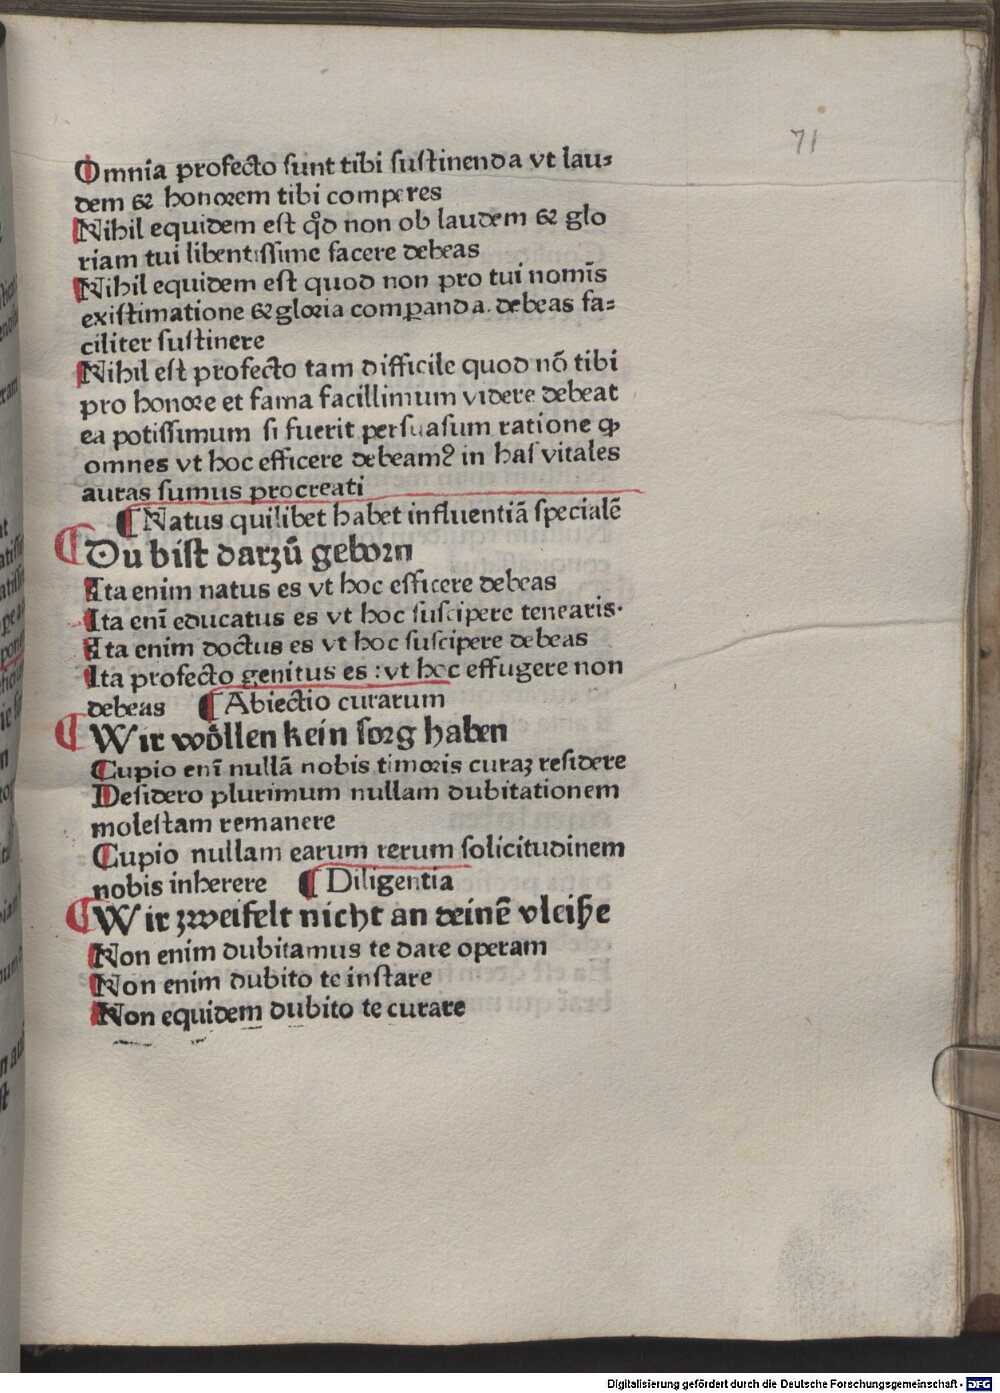 71
Omnia profecto sunt tibi sustinenda vt lau⸗
dem & honorem tibi compares
Nihil equidem est qd̛ non ob laudem & glo
riam tui libentissime facere debeas
Nihil equidem est quod non pro tui nomīs
existimatione & gloria comꝑanda. debeas fa⸗
ciliter sustinere
Nihil est profecto tam difficile quod nō tibi
pro honore et fama facillimum videre debeat
ea potissimum si fuerit persuasum ratione ꝙ
omnes vt hoc efficere debeamꝰ in has vitales
auras sumus procreati
¶ Natus quilibet habet influentiā specialē
Du bist darzů geborn
Ita enim natus es vt hoc efficere debeas
Ita enī educatus es vt hoc suscipere tenearis.
Ita enim doctus es vt hoc suscipere debeas
Ita profecto genitus es : vt hoc effugere non
debeas ¶ Abiectio curarum
Wir wöllen kein sorg haben
Cupio enī nullā nobis timoris curaꝫ residere
Desidero plurimum nullam dubitationem
molestam remanere
Cupio nullam earum rerum solicitudinem
nobis inherere ¶ Diligentia
Wir zweifelt nicht an deinē vleiße
Non enim dubitamus te dare operam
Non enim dubito te instare
Non equidem dubito te curare
Digitalisierung gefördert durch die Deutsche Forschungsgemeinschaft - DFG